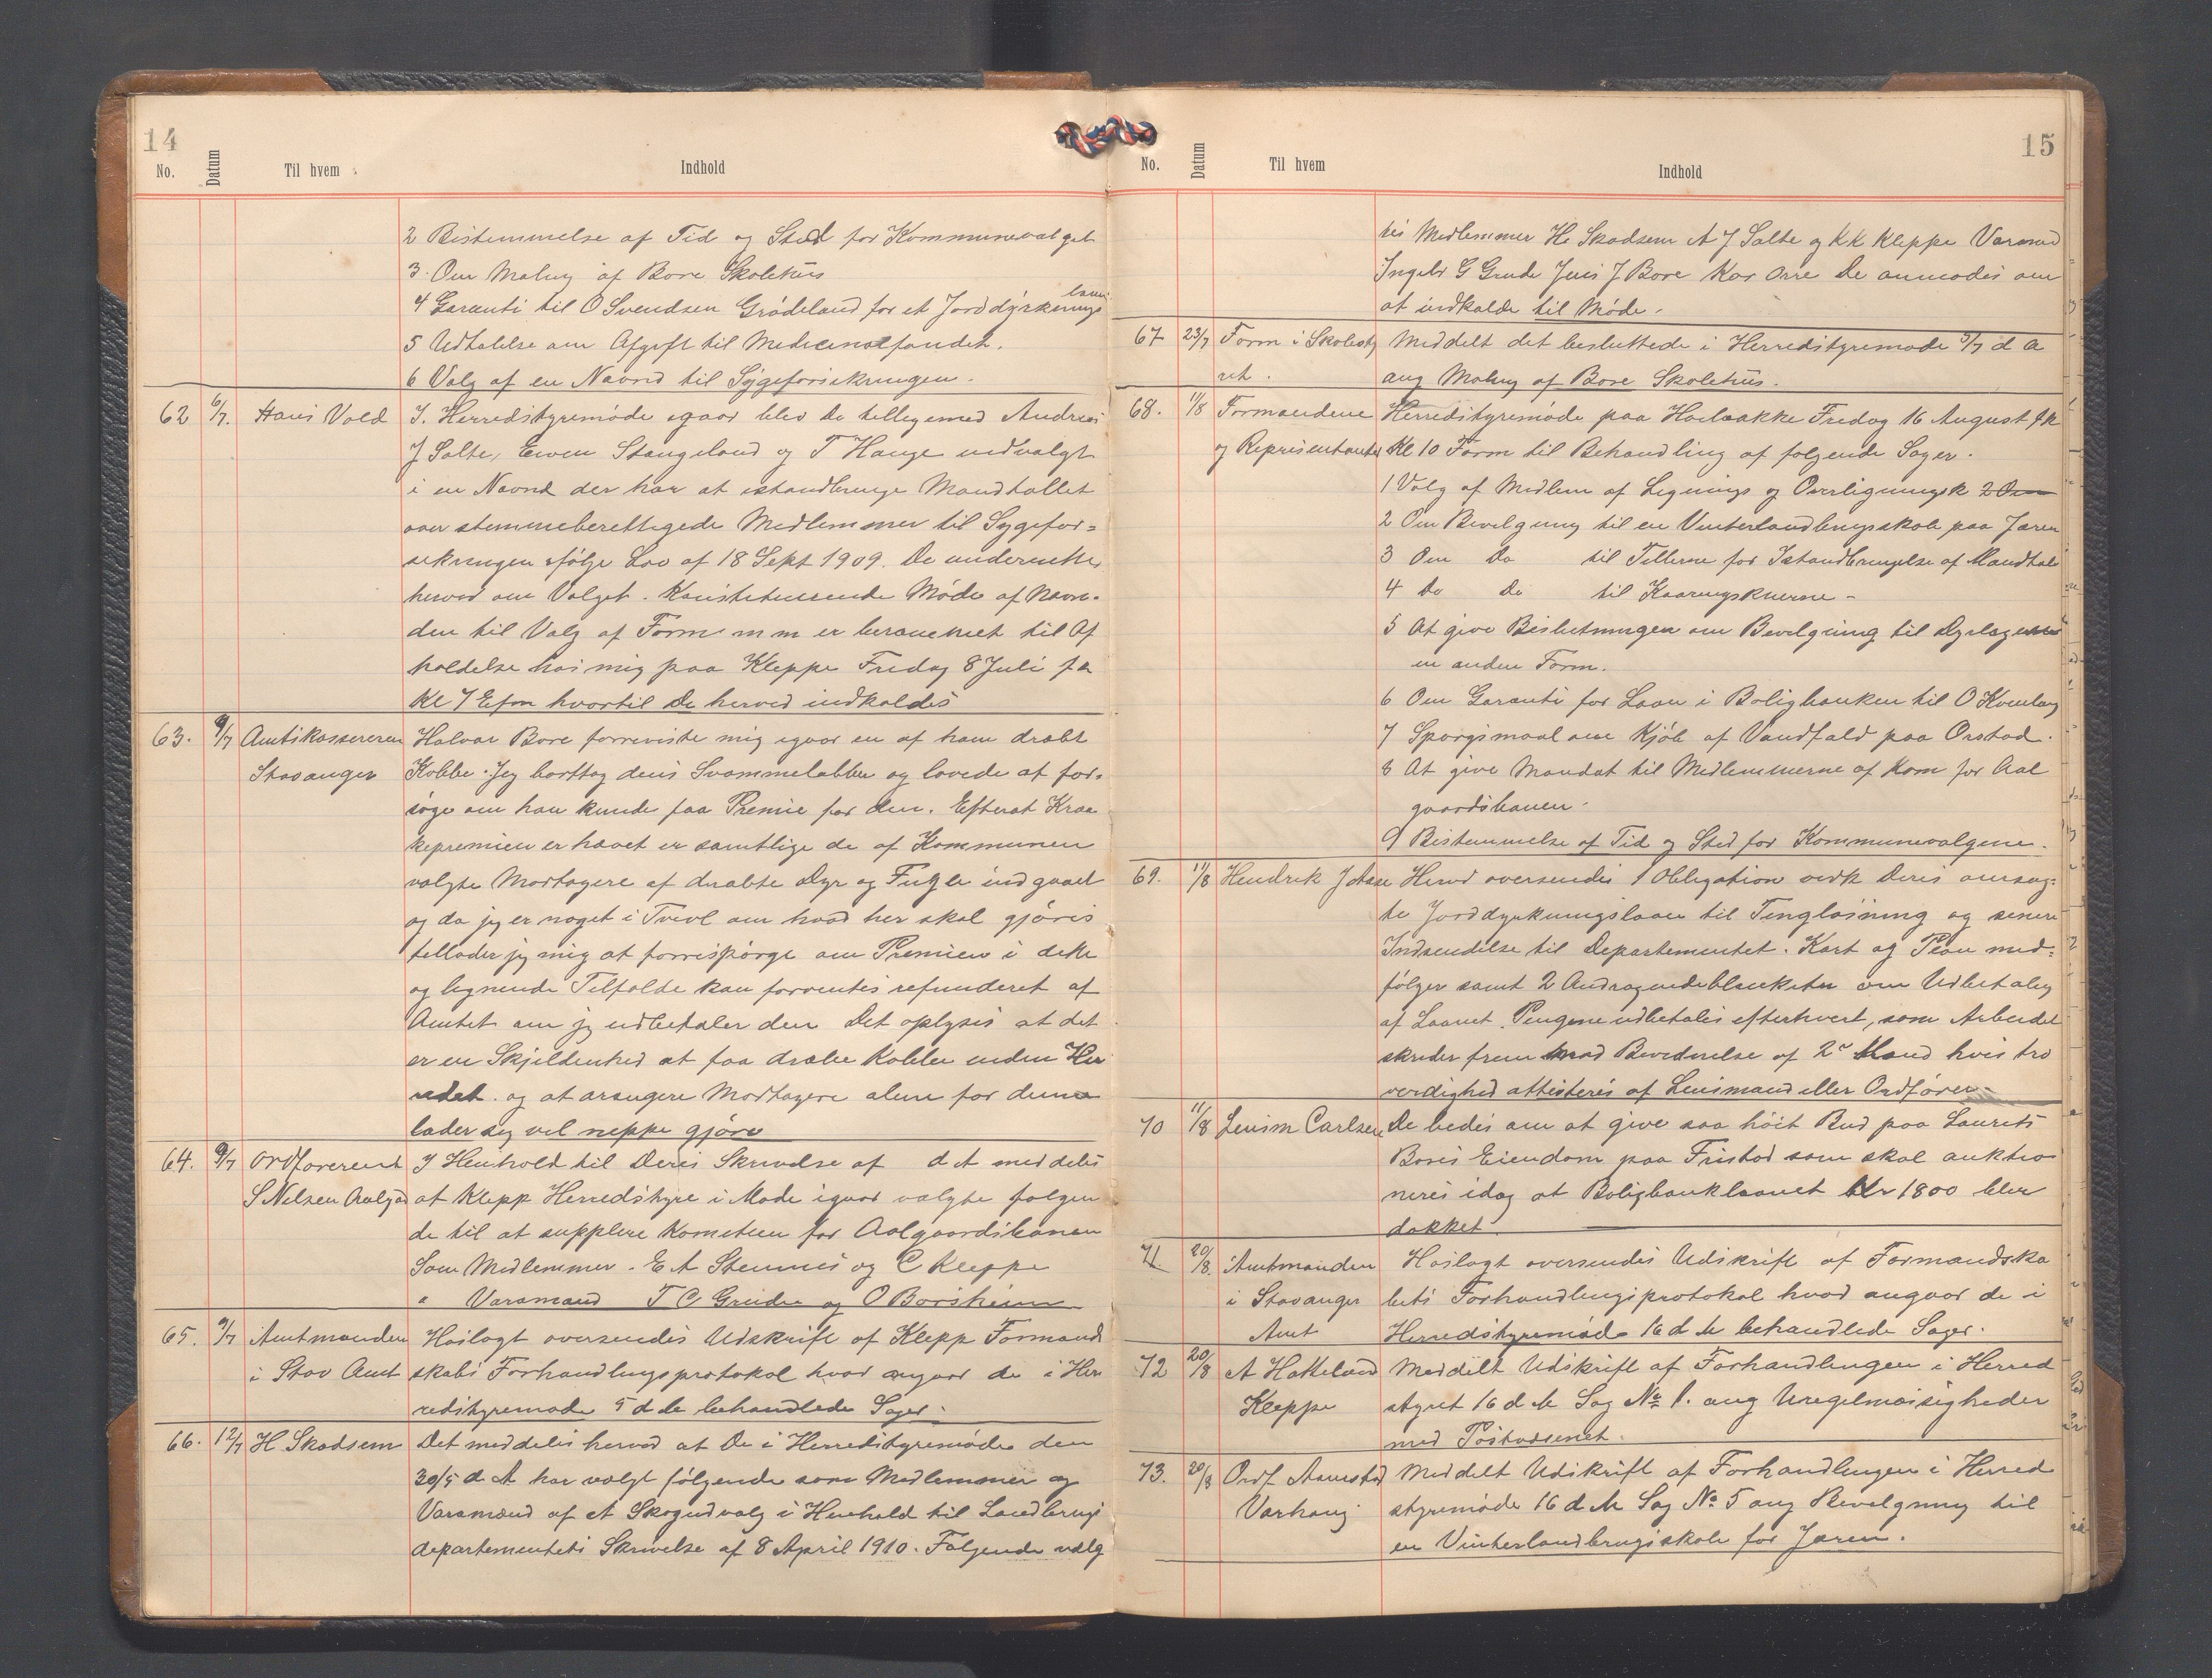 14
No. Datum Til hvem Indhold
2 Bestemmelse af Tid og Sted for Kommunevalget
3. Om Maling af Bore Skolehus
4 Garanti til O Svendsen Grødeland for et Jorddyrknings laan
5 Udtalelse om Afgift til Medicinalfondet.
6 Valg af en Nævnd til Sygeforsikringen.
62 6/7. Hans Vold I. Herredstyremøde igaar blev De tilligemed Andreas
J Salte, Ewen Stangeland og T Hauge udvalgt
i en Nævnd der har at istandbringe Mandtallet
over stemmeberettigede Medlemmer til Sygefor=
sikringen ifølge Lov af 18 Sept 1909. De underrettes
herved om Valget. Konstituerende Møde af Nævn-
den til Valg af Form m m er berammet til Af
holdelse hos mig paa Kleppe Fredag 8 Juli f k
Kl 7 Efm hvortil De herved indkaldes
63. 9/7 Amtskassereren Halvar Bore foreviste mig igaar en af ham dræbt
Stavanger Kobbe. Jeg borttog dens Svømmelabber og lovede at for-
søge om han kunde faa Premie for den. Efterat Kraa
kepremien er hævet er samtlige de af Kommunen
valgte Modtagere af dræbte Dyr og Fugle indgaaet
og da jeg er noget i Tvivl om hvad her skal gjøres
tillader jeg mig at forrespørge om Premien i dette
og lignende Tilfælde kan forventes refunderet af
Amtet om jeg udbetaler den Det oplyses at det
er en Skjeldenhed at faa dræbe Kobber inden Her
redet. og at arangere Modtagere alene for denne
lader sig vel neppe gjøre
64. 9/7 Ordføreren S Nelsen Aalgaard I Henhold til Deres Skrivelse af d A meddeles
at Klepp Herredstyre i Møde igaar valgte følgen
de til at supplere Kometeen for Aalgaardsbanen
Som Medlemmer. E A Stennes og C Kleppe
" Varamænd T C Grude og O Borsheim
65. 9/7 Amtmanden Hoslagt oversendes Udskrift af Klepp Formand
i Stav Amt skabs Forhandlingsprotokol hvad angaar de i Her
redstyremøde 5 d M behandlede Sager.
66. 12/7 H Skadsem Det meddeles herved at De i Herredstyremøde den
30/5 d A har valgt følgende som Medlemmer og
Varamænd af et Skogudvalg i Henhold til Landbrugs
departementets Skrivelse af 8 April 1910. Følgende valg
15
No. Datum Til hvem Indhold
tes Medlemmer H Skadsem A J Salte og K K Kleppe Varamænd
Ingebr G Grude Jens J Bore Kar Orre De anmodes om
at indkalde til Møde.
67 23/7 Form i Skolesty Meddelt det besluttede i Herredstyremøde 5/7 d A
ret. ang Maling af Bore Skolehus.
68. 1/8 Formændene Herredstyremøde paa Hoelaakke Fredag 16 August f k
og Representanter Kl 10 Form til Behandling af følgende Sager.
1 Valg af Medlem af Lignings og Overligningsk
2 Om Bevilgning til en Vinterlandbrugsskole paa Jæren
3 Om Do til Tellerne for Istandbringelse af Mandtal
4 Do Do til Kaaringsknerne -
5 At give Beslutningen om Bevilgning til Dyrlægerne
en anden Form.
6 Om Garanti for Laan i Boligbanken til O Kvenlang
7 Spørgsmaal om Kjøb af Vandfald paa Orstad.
8 At give Mandat til Medlemmerne af Kom for Aal
gaardsbanen.
9 Bestemmelse af Tid og Sted for Kommunevalgene.
69. 11/8 Hendrik J Aase Herved oversendes 1 Obligation vedk Deres ansøg=
te Jorddyrkningslaan til Tinglæsning og senere
Indsendelse til Departementet. Kart og Plan med=
følger samt 2 Andragendeblanketter om Udbetaling
af Laanet. Pengene udbetales efterhvert, som Arbeidet
skrider frem mod Bevidnelse af 2de Mænd hvis tro
verdighed attesteres af Lensmand eller Ordfører-
70 11/8 Lensm Carlsen De bedes om at give saa høit Bud paa Laurets
Bores Eiendom paa Fristad som skal auktio
neres idag at Boligbanklaanet Kr 1800 blir
dækket
71. 20/8. Amtmanden Hoslagt oversendes Udskrift af Formandska
i Stavanger bets Forhandlingsprotokol hvad angaar de i
Amt Herredstyremøde 16 d M behandlede Sager.
72 20/8 A Hatteland Meddelt Udskrift af Forhandlingen i Herred
Kleppe styret 16 d M Sag No 1. ang Uregelmæsigheder
med Postvæsenet.
73. 20/8 Ordf Aanestad Meddelt Udskrift af Forhandlingen i Herred
Varhaug styremøde 16 d M Sag No 5 ang Bevilgning til
en Vinterlandbrugsskole for Jæren.